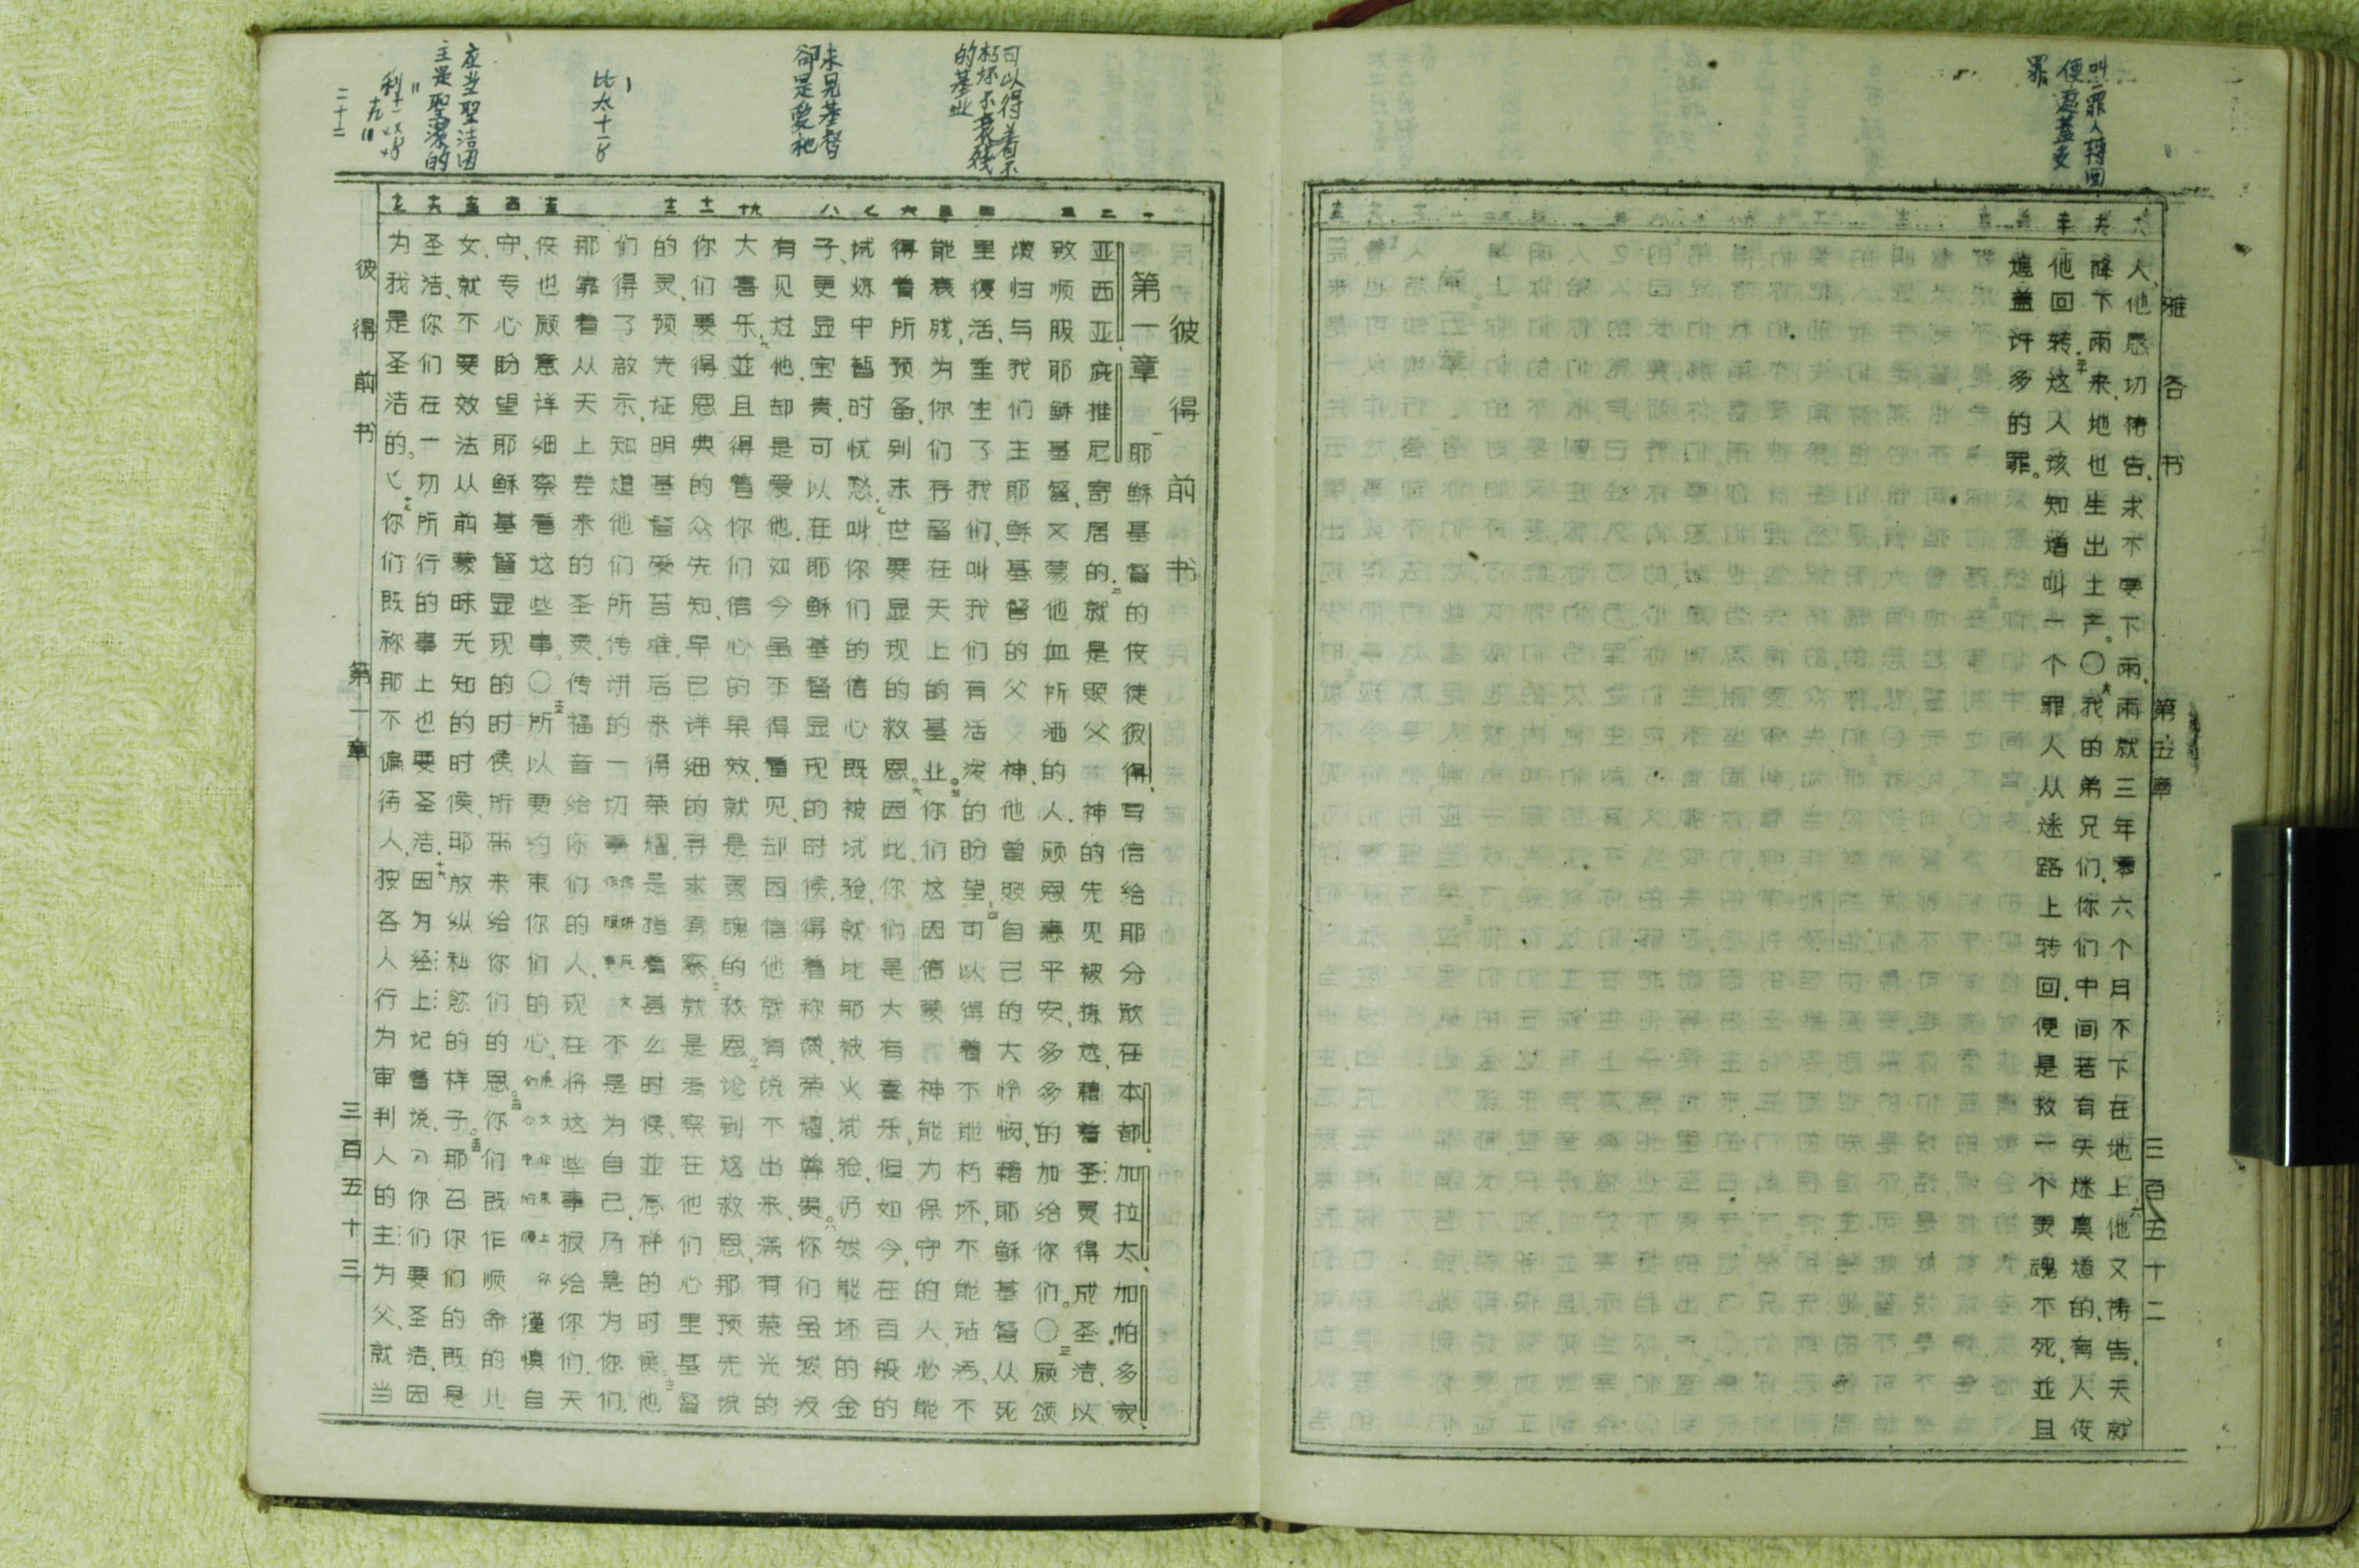 叫一罪人转回
便遮盖多
罪
雅各书 第五章 三百五十二
人、他恳切祷告、求不要下雨、雨就三年零六个月不下在地上他又祷告、天就
降下雨来、地也生出土产。〇我的弟兄们、你们中间若有失迷真道的、有人使
他回转、这人该知道叫一个罪人从迷路上转回、便是救一个灵魂不死、並且
遮盖许多的罪。
可以得着不
朽坏不衰残
的基业
未见基督
卻是爱祂
比太十一8
应当聖洁因
主是聖潔的
彼得前书
第一章 耶稣基督的使徒彼得、写信给耶分散在本都加拉太、加帕多家、
亚西亚、庇推尼寄居的、就是照父神的先见被拣选、藉着圣灵得成圣洁、以
致顺服耶稣基督、又蒙他血所洒的人.愿恩惠平安、多多的加给你们。〇愿颂
赞归与我们主耶稣基督的父神、他曾照自己的大怜悯、藉耶稣基督从死
里復活、重生了我们、叫我们有活泼的盼望、可以得着不能朽坏、不能玷污、不
能衰残、为你们存留在天上的基业。你们这因信蒙神能力保守的人、必能
得着所预备、到末世要显现的救恩。因此、你们是大有喜乐、但如今、在百般的
试炼中暂时忧愁、叫你们的信心既被试验、就比那被火试验、仍然能坏的金
子、更显宝贵、可以在耶稣基督显现的时候、得着称赞荣耀尊贵。你们虽然没
有见过他、却是爱他.如今虽不得看见、却因信他就有说不出来、满有荣光的
大喜乐、並且得着你们信心的果效、就是灵魂的救恩、论到这救恩、那预先说
你们要得恩典的众先知、早已详细的寻求考察、就是考察在他们心里基督
的灵、预先证明基督受苦难、后来得荣耀、是指着甚么时候、並怎样的时候、他
们得了啟示、知道他们所传讲的一切事传讲原文作服事不是为自己、乃是为你们、
那靠着从天上差来的圣灵、传福音给你们的人、现在将这些事报给你们、天
使也愿意详细察看这些事。〇所以要约束你们的心、谨慎自
守、专心盼望耶稣基督显现的时候、所带来给你们的恩。你们既作顺命的儿
女、就不要效法从前蒙昧无知的时候、那放纵私慾的样子。那召你们的既是
圣洁、你们在一切所行的事上也要圣洁.因为经上记着说、你们要圣洁、因
为我是圣洁的。你们既称那不偏待人、按各人行为审判人的主为父、就当
彼得前书 第一章 三百五十三